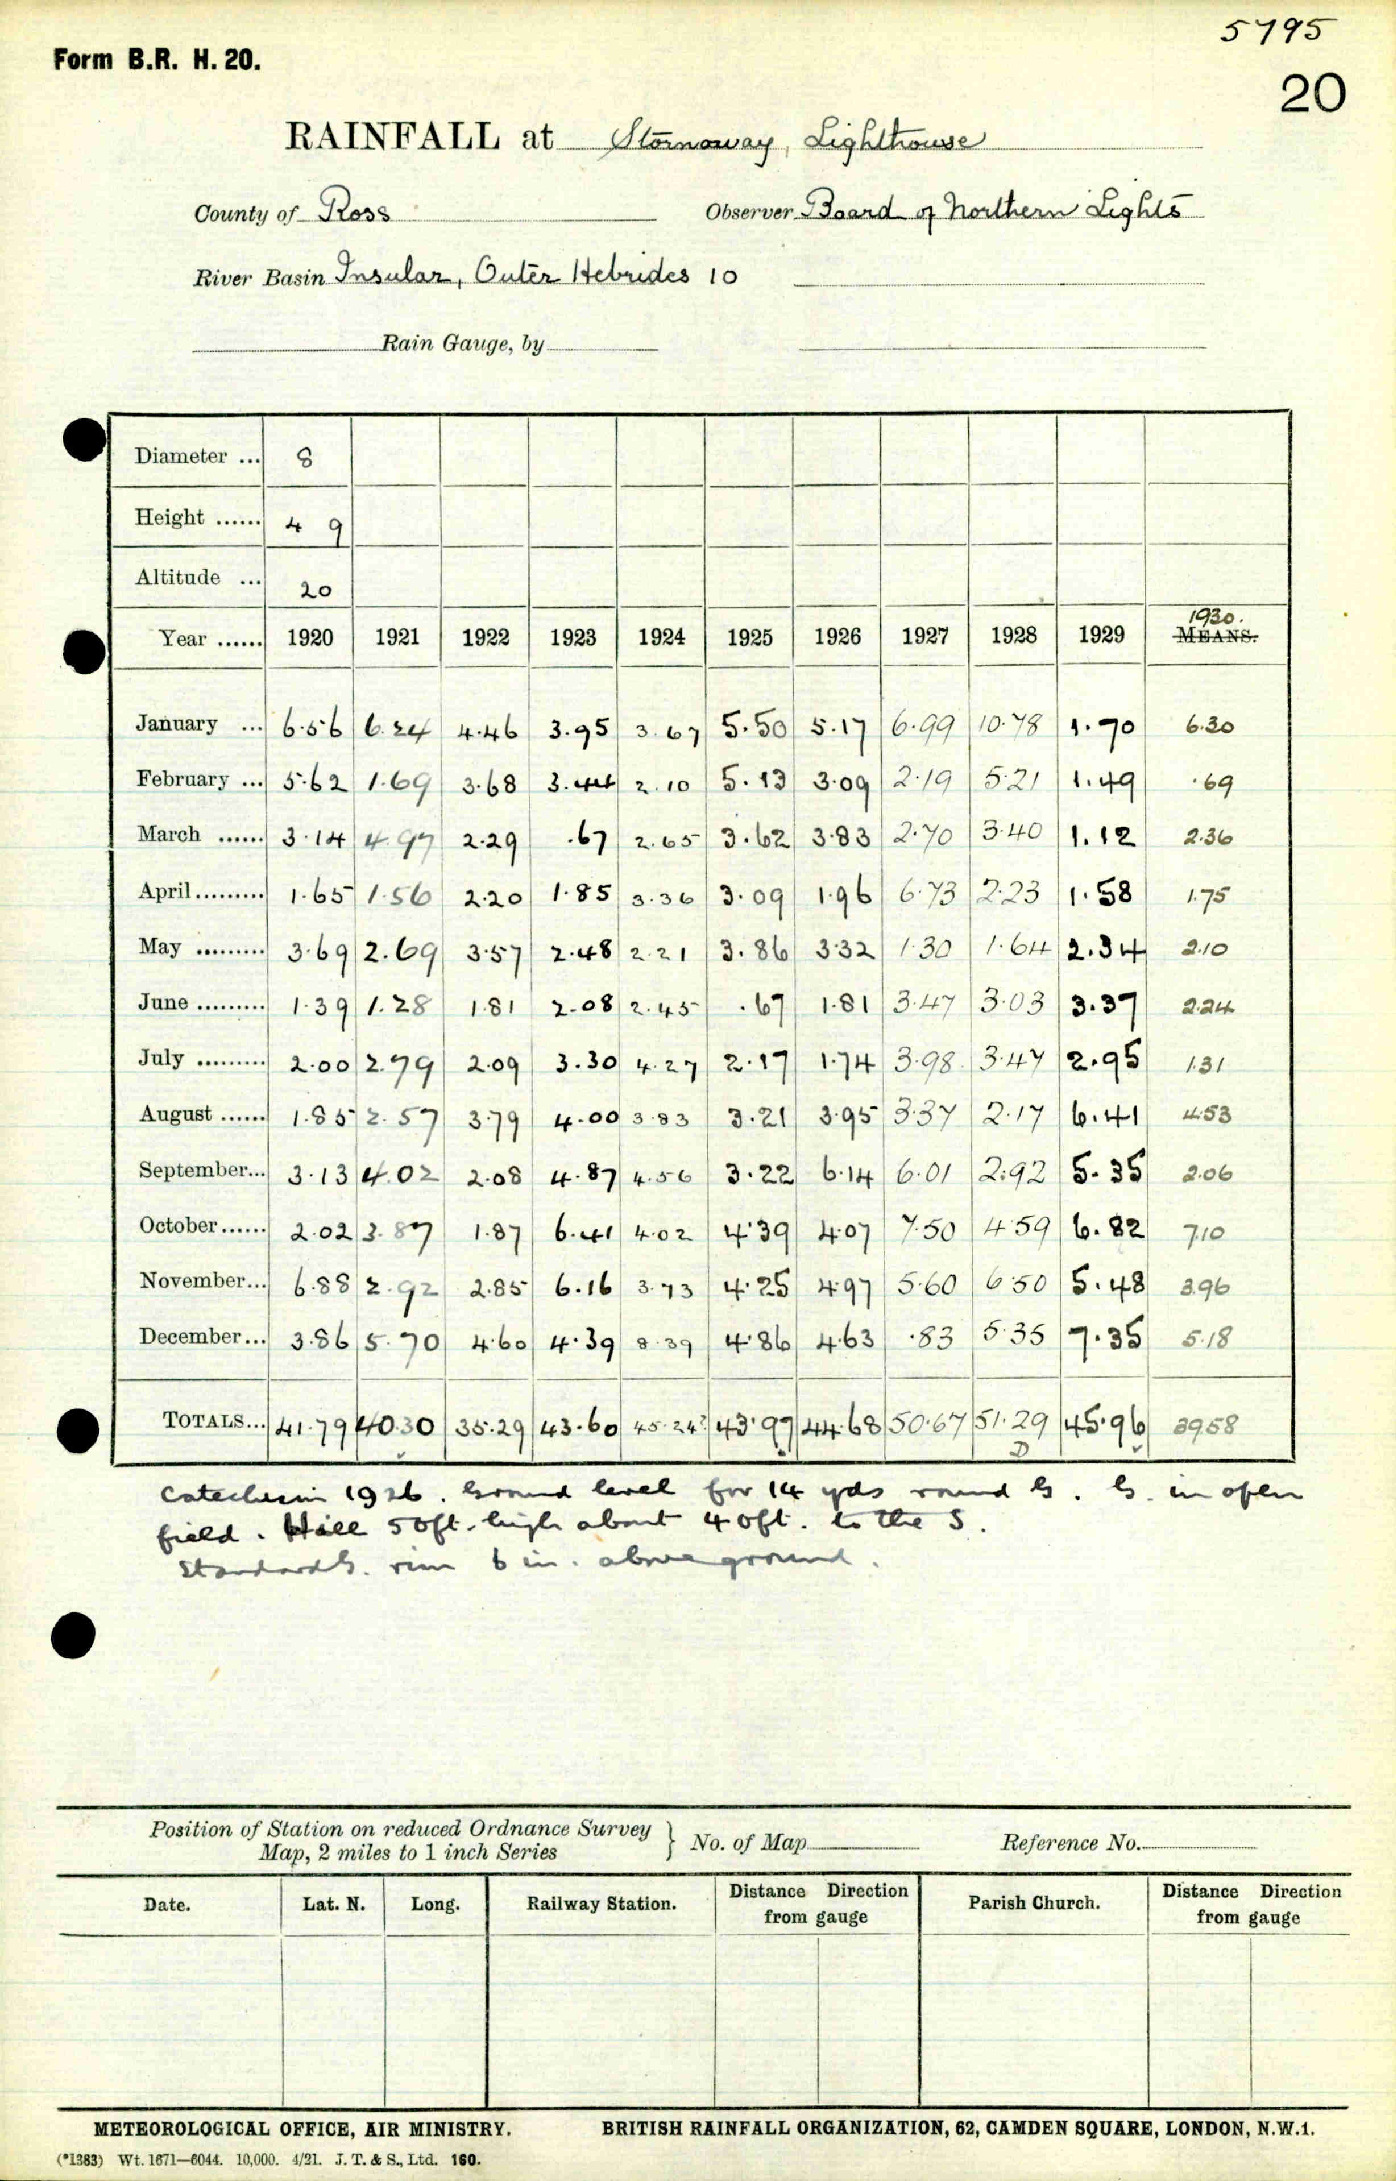 5795
Form B.R. H. 20.
20
RAINFALL at Stornoway, Lighthouse
County of Ross Observer Board of Northern Lights
River Basin Insular, Outer Hebrides 10
Rain Gauge, by
Diameter ... 8
Height ...... 4 9
Altitude ... 20
1930.
Year ...... 1920 1921 1922 1923 1924 1925 1926 1927 1928 1929 MEANS.
January ... 6.56 6.24 4.46 3.95 3.67 5.50 5.17 6.99 10.78 1.70 6.30
February ... 5.62 1.69 3.68 3.44 2.10 5.13 3.09 2.19 5.21 1.49 .69
March ...... 3.14 4.97 2.29 .67 2.65 3.62 3.83 2.70 3.40 1.12 2.36
April......... 1.65 1.56 2.20 1.85 3.36 3.09 1.96 6.73 2.23 1.58 1.75
May ......... 3.69 2.69 3.57 2.48 2.21 3.86 3.32 1.30 1.64 2.34 2.10
June ......... 1.39 1.28 1.81 2.08 2.45 .67 1.81 3.47 3.03 3.37 2.24
July ......... 2.00 2.79 2.09 3.30 4.27 2.17 1.74 3.98 3.47 2.95 1.31
August ...... 1.85 2.57 3.79 4.00 3.83 3.21 3.95 3.37 2.17 6.41 4.53
September... 3.13 4.02 2.08 4.87 4.56 3.22 6.14 6.01 2.92 5.35 2.06
October...... 2.02 3.87 1.87 6.41 4.02 4.39 4.07 7.50 4.59 6.82 7.10
November... 6.88 2.92 2.85 6.16 3.73 4.25 4.97 5.60 6.50 5.48 3.96
December... 3.86 5.70 4.60 4.39 8.39 4.86 4.63 .83 5.35 7.35 5.18
TOTALS... 41.79 40.30 35.29 43.60 45.24? 43.97 44.68 50.67 51.29 45.96 39.58
D
Catechism 1926. Ground level for 14 yds round G. G. in open
field. Hill 50ft. high about 40ft. to the S.
Standard G. rim 6 in. above ground.
Position of Station on reduced Ordnance Survey
Map, 2 miles to 1 inch Series } No. of Map Reference No.
Date. Lat. N. Long. Railway Station. Distance Direction from gauge Parish Church. Distance Direction from gauge
METEOROLOGICAL OFFICE, AIR MINISTRY. BRITISH RAINFALL ORGANIZATION, 62, CAMDEN SQUARE, LONDON, N.W.1.
(*1383) Wt. 1671—6044. 10,000. 4/21. J. T. & S., Ltd. 160.